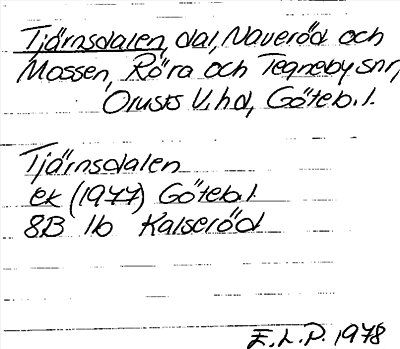 Tjärnsdalen, dal, Naveröd och
Mossen, Röra och Tegneby snr,
Orusts V. hd, Göteb. l.
Tjärnsdalen
ek (1977) Göteb. l
8B 1b Kalseröd
E. L. P. 1978